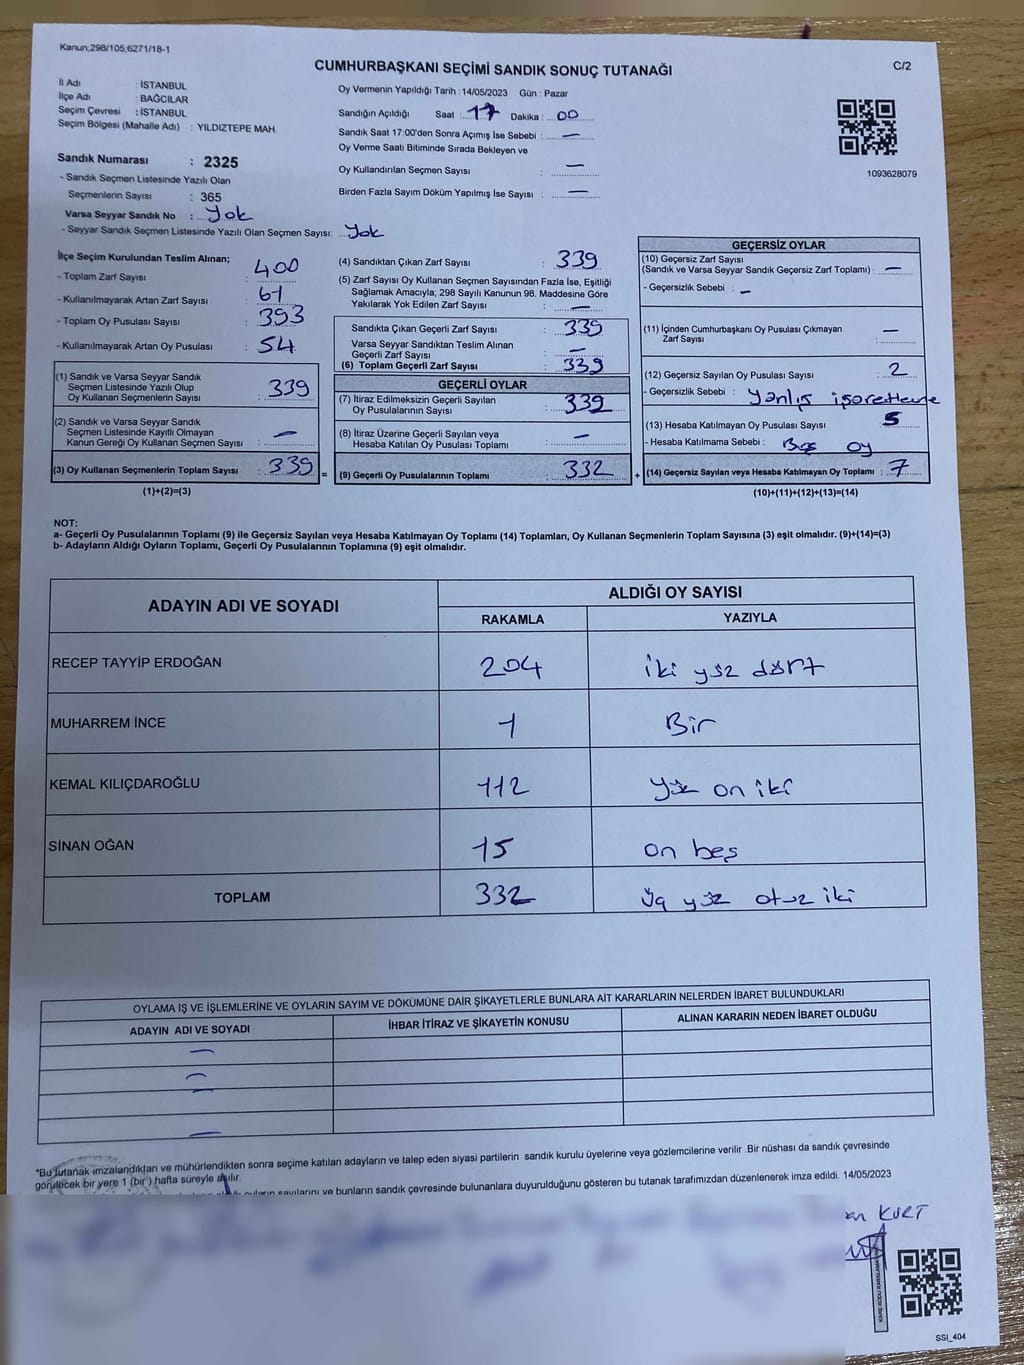 Kanun;298/105;6271/18-1
C/2
CUMHURBAŞKANI SEÇİMİ SANDIK SONUÇ TUTANAĞI
İl Adı : İSTANBUL
İlçe Adı : BAĞCILAR
Seçim Çevresi : İSTANBUL
Seçim Bölgesi (Mahalle Adı) : YILDIZTEPE MAH.
Sandık Numarası : 2325
- Sandık Seçmen Listesinde Yazılı Olan
Seçmenlerin Sayısı : 365
Varsa Seyyar Sandık No : Yok
- Seyyar Sandık Seçmen Listesinde Yazılı Olan Seçmen Sayısı: Yok
Oy Vermenin Yapıldığı Tarih : 14/05/2023 Gün : Pazar
Sandığın Açıldığı Saat : 17 Dakika : 00
Sandık Saat 17:00'den Sonra Açımış İse Sebebi : —
Oy Verme Saati Bitiminde Sırada Bekleyen ve
Oy Kullandırılan Seçmen Sayısı : —
Birden Fazla Sayım Döküm Yapılmış İse Sayısı : —
1093628079
İlçe Seçim Kurulundan Teslim Alınan;
- Toplam Zarf Sayısı : 400
- Kullanılmayarak Artan Zarf Sayısı : 61
- Toplam Oy Pusulası Sayısı : 393
- Kullanılmayarak Artan Oy Pusulası : 54
(1) Sandık ve Varsa Seyyar Sandık
Seçmen Listesinde Yazılı Olup
Oy Kullanan Seçmenlerin Sayısı : 339
(2) Sandık ve Varsa Seyyar Sandık
Seçmen Listesinde Kayıtlı Olmayan
Kanun Gereği Oy Kullanan Seçmen Sayısı : —
(3) Oy Kullanan Seçmenlerin Toplam Sayısı : 339 =
(1)+(2)=(3)
(4) Sandıktan Çıkan Zarf Sayısı : 339
(5) Zarf Sayısı Oy Kullanan Seçmen Sayısından Fazla İse, Eşitliği
Sağlamak Amacıyla; 298 Sayılı Kanunun 98. Maddesine Göre
Yakılarak Yok Edilen Zarf Sayısı : —
Sandıkta Çıkan Geçerli Zarf Sayısı : 339
Varsa Seyyar Sandıktan Teslim Alınan
Geçerli Zarf Sayısı : —
(6) Toplam Geçerli Zarf Sayısı : 339
GEÇERLİ OYLAR
(7) İtiraz Edilmeksizin Geçerli Sayılan
Oy Pusulalarının Sayısı : 332
(8) İtiraz Üzerine Geçerli Sayılan veya
Hesaba Katılan Oy Pusulası Toplamı : —
(9) Geçerli Oy Pusulalarının Toplamı : 332 +
GEÇERSİZ OYLAR
(10) Geçersiz Zarf Sayısı
(Sandık ve Varsa Seyyar Sandık Geçersiz Zarf Toplamı) : —
- Geçersizlik Sebebi : —
(11) İçinden Cumhurbaşkanı Oy Pusulası Çıkmayan
Zarf Sayısı : —
(12) Geçersiz Sayılan Oy Pusulası Sayısı : 2
- Geçersizlik Sebebi : Yanlış işaretleme
(13) Hesaba Katılmayan Oy Pusulası Sayısı : 5
- Hesaba Katılmama Sebebi : Boş oy
(14) Geçersiz Sayılan veya Hesaba Katılmayan Oy Toplamı : 7
(10)+(11)+(12)+(13)=(14)
NOT:
a- Geçerli Oy Pusulalarının Toplamı (9) ile Geçersiz Sayılan veya Hesaba Katılmayan Oy Toplamı (14) Toplamları, Oy Kullanan Seçmenlerin Toplam Sayısına (3) eşit olmalıdır. (9)+(14)=(3)
b- Adayların Aldığı Oyların Toplamı, Geçerli Oy Pusulalarının Toplamına (9) eşit olmalıdır.
ADAYIN ADI VE SOYADI
ALDIĞI OY SAYISI
RAKAMLA YAZIYLA
RECEP TAYYİP ERDOĞAN 204 iki yüz dört
MUHARREM İNCE 1 Bir
KEMAL KILIÇDAROĞLU 112 Yüz on iki
SİNAN OĞAN 15 on beş
TOPLAM 332 üç yüz otuz iki
OYLAMA İŞ VE İŞLEMLERİNE VE OYLARIN SAYIM VE DÖKÜMÜNE DAİR ŞİKAYETLERLE BUNLARA AİT KARARLARIN NELERDEN İBARET BULUNDUKLARI
ADAYIN ADI VE SOYADI İHBAR İTİRAZ VE ŞİKAYETİN KONUSU ALINAN KARARIN NEDEN İBARET OLDUĞU
—
—
—
—
*Bu tutanak imzalandıktan ve mühürlendikten sonra seçime katılan adayların ve talep eden siyasi partilerin sandık kurulu üyelerine veya gözlemcilerine verilir .Bir nüshası da sandık çevresinde
görülecek bir yere 1 (bir ) hafta süreyle asılır.
oyların sayılarını ve bunların sandık çevresinde bulunanlara duyurulduğunu gösteren bu tutanak tarafımızdan düzenlenerek imza edildi. 14/05/2023
KURT
SSI_404